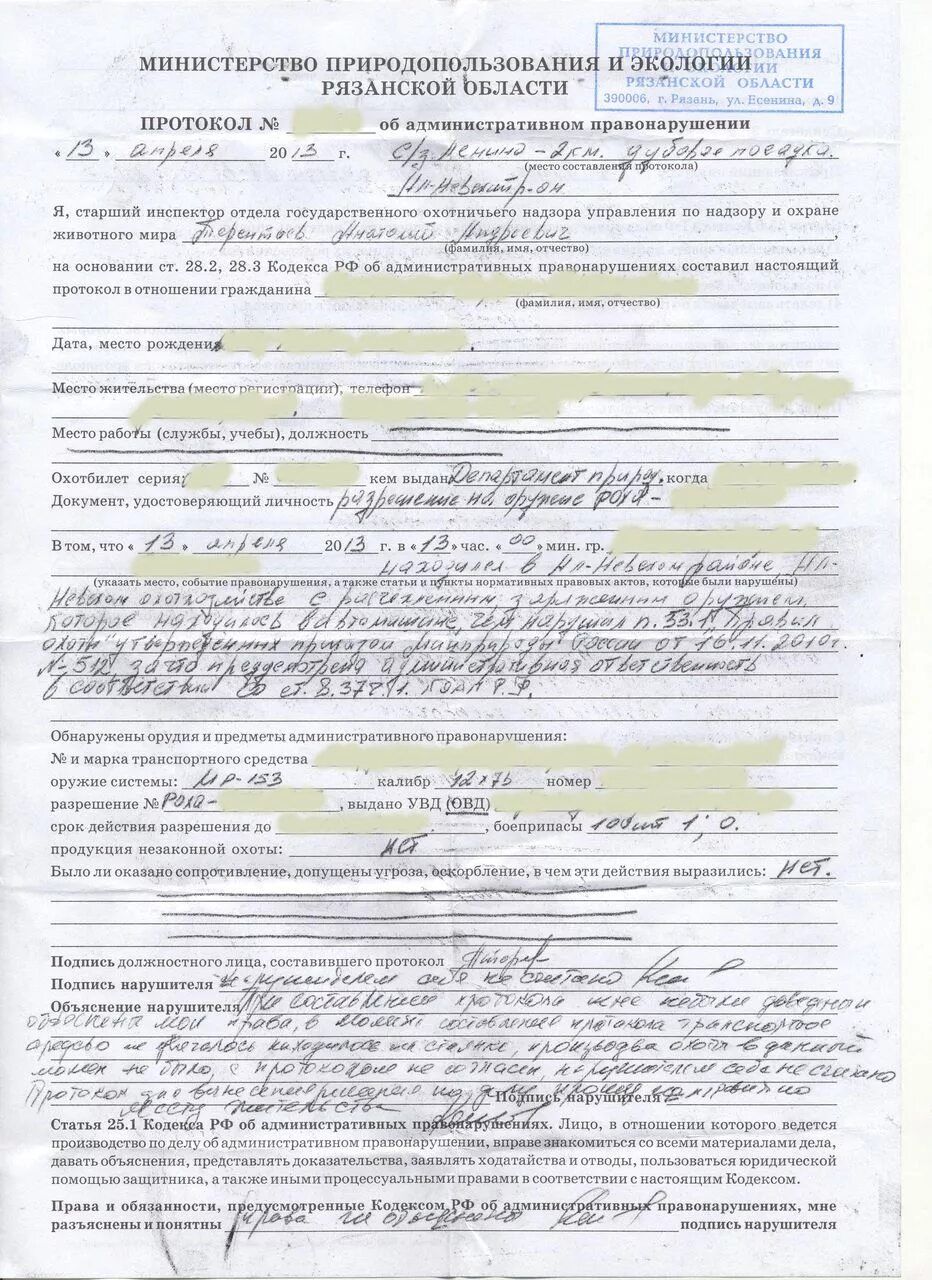 МИНИСТЕРСТВО
ПРИРОДОПОЛЬЗОВАНИЯ
ЭКОЛОГИИ
РЯЗАНСКОЙ ОБЛАСТИ
390006, г. Рязань, ул. Есенина, д. 9
МИНИСТЕРСТВО ПРИРОДОПОЛЬЗОВАНИЯ И ЭКОЛОГИИ
РЯЗАНСКОЙ ОБЛАСТИ
ПРОТОКОЛ № об административном правонарушении
« 13 » апреля 2013 г. с/з Ленина - 2км. дубовая посадка.
(место составления протокола)
Ал-Невский р-он
Я, старший инспектор отдела государственного охотничьего надзора управления по надзору и охране
животного мира Терентьев Анатолий Андреевич,
(фамилия, имя, отчество)
на основании ст. 28.2, 28.3 Кодекса РФ об административных правонарушениях составил настоящий
протокол в отношении гражданина
(фамилия, имя, отчество)
Дата, место рождения
Место жительства (место регистрации), телефон
Место работы (службы, учебы), должность
Охотбилет серия № кем выдан Департамент природ. когда
Документ, удостоверяющий личность разрешение на оружие РОХА-
В том, что « 13 » апреля 2013 г. в « 13 » час. « 00 » мин. гр.
находился в Ал-Невском районе, Ал-
(указать место, событие правонарушения, а также статьи и пункты нормативных правовых актов, которые были нарушены)
Невском охотхозяйстве с расчехленным заряженным оружием,
которое находилось в автомашине, чем нарушил п. 53.1 Правил
охоты утвержденных приказом Минприроды России от 16.11.2010г.
№-512, за что предусмотрена административная ответственность
в соответствии со ст. 8.37 ч.1. КОАП Р.Ф.
Обнаружены орудия и предметы административного правонарушения:
№ и марка транспортного средства
оружие системы: МР-153 калибр 12х76 номер
разрешение № РОХА- , выдано УВД (ОВД)
срок действия разрешения до , боеприпасы 10 шт 1; 0.
продукция незаконной охоты: нет
Было ли оказано сопротивление, допущены угроза, оскорбление, в чем эти действия выразились: нет.
Подпись должностного лица, составившего протокол
Подпись нарушителя нарушителем себя не считаю
Объяснение нарушителя При составлении протокола мне небыли доведены
объяснены мои права, в момент составления протокола транспортное
средство не двигалось находилось на стоянке, производва охоты в данный
момент не было, с протоколом не согласен, нарушителем себя не считаю
Протокол для вынесения решения прошу направить по
Подпись нарушителя
месту жительства
Статья 25.1 Кодекса РФ об административных правонарушениях. Лицо, в отношении которого ведется
производство по делу об административном правонарушении, вправе знакомиться со всеми материалами дела,
давать объяснения, представлять доказательства, заявлять ходатайства и отводы, пользоваться юридической
помощью защитника, а также иными процессуальными правами в соответствии с настоящим Кодексом.
Права и обязанности, предусмотренные Кодексом РФ об административных правонарушениях, мне
разъяснены и понятны права не объяснены подпись нарушителя